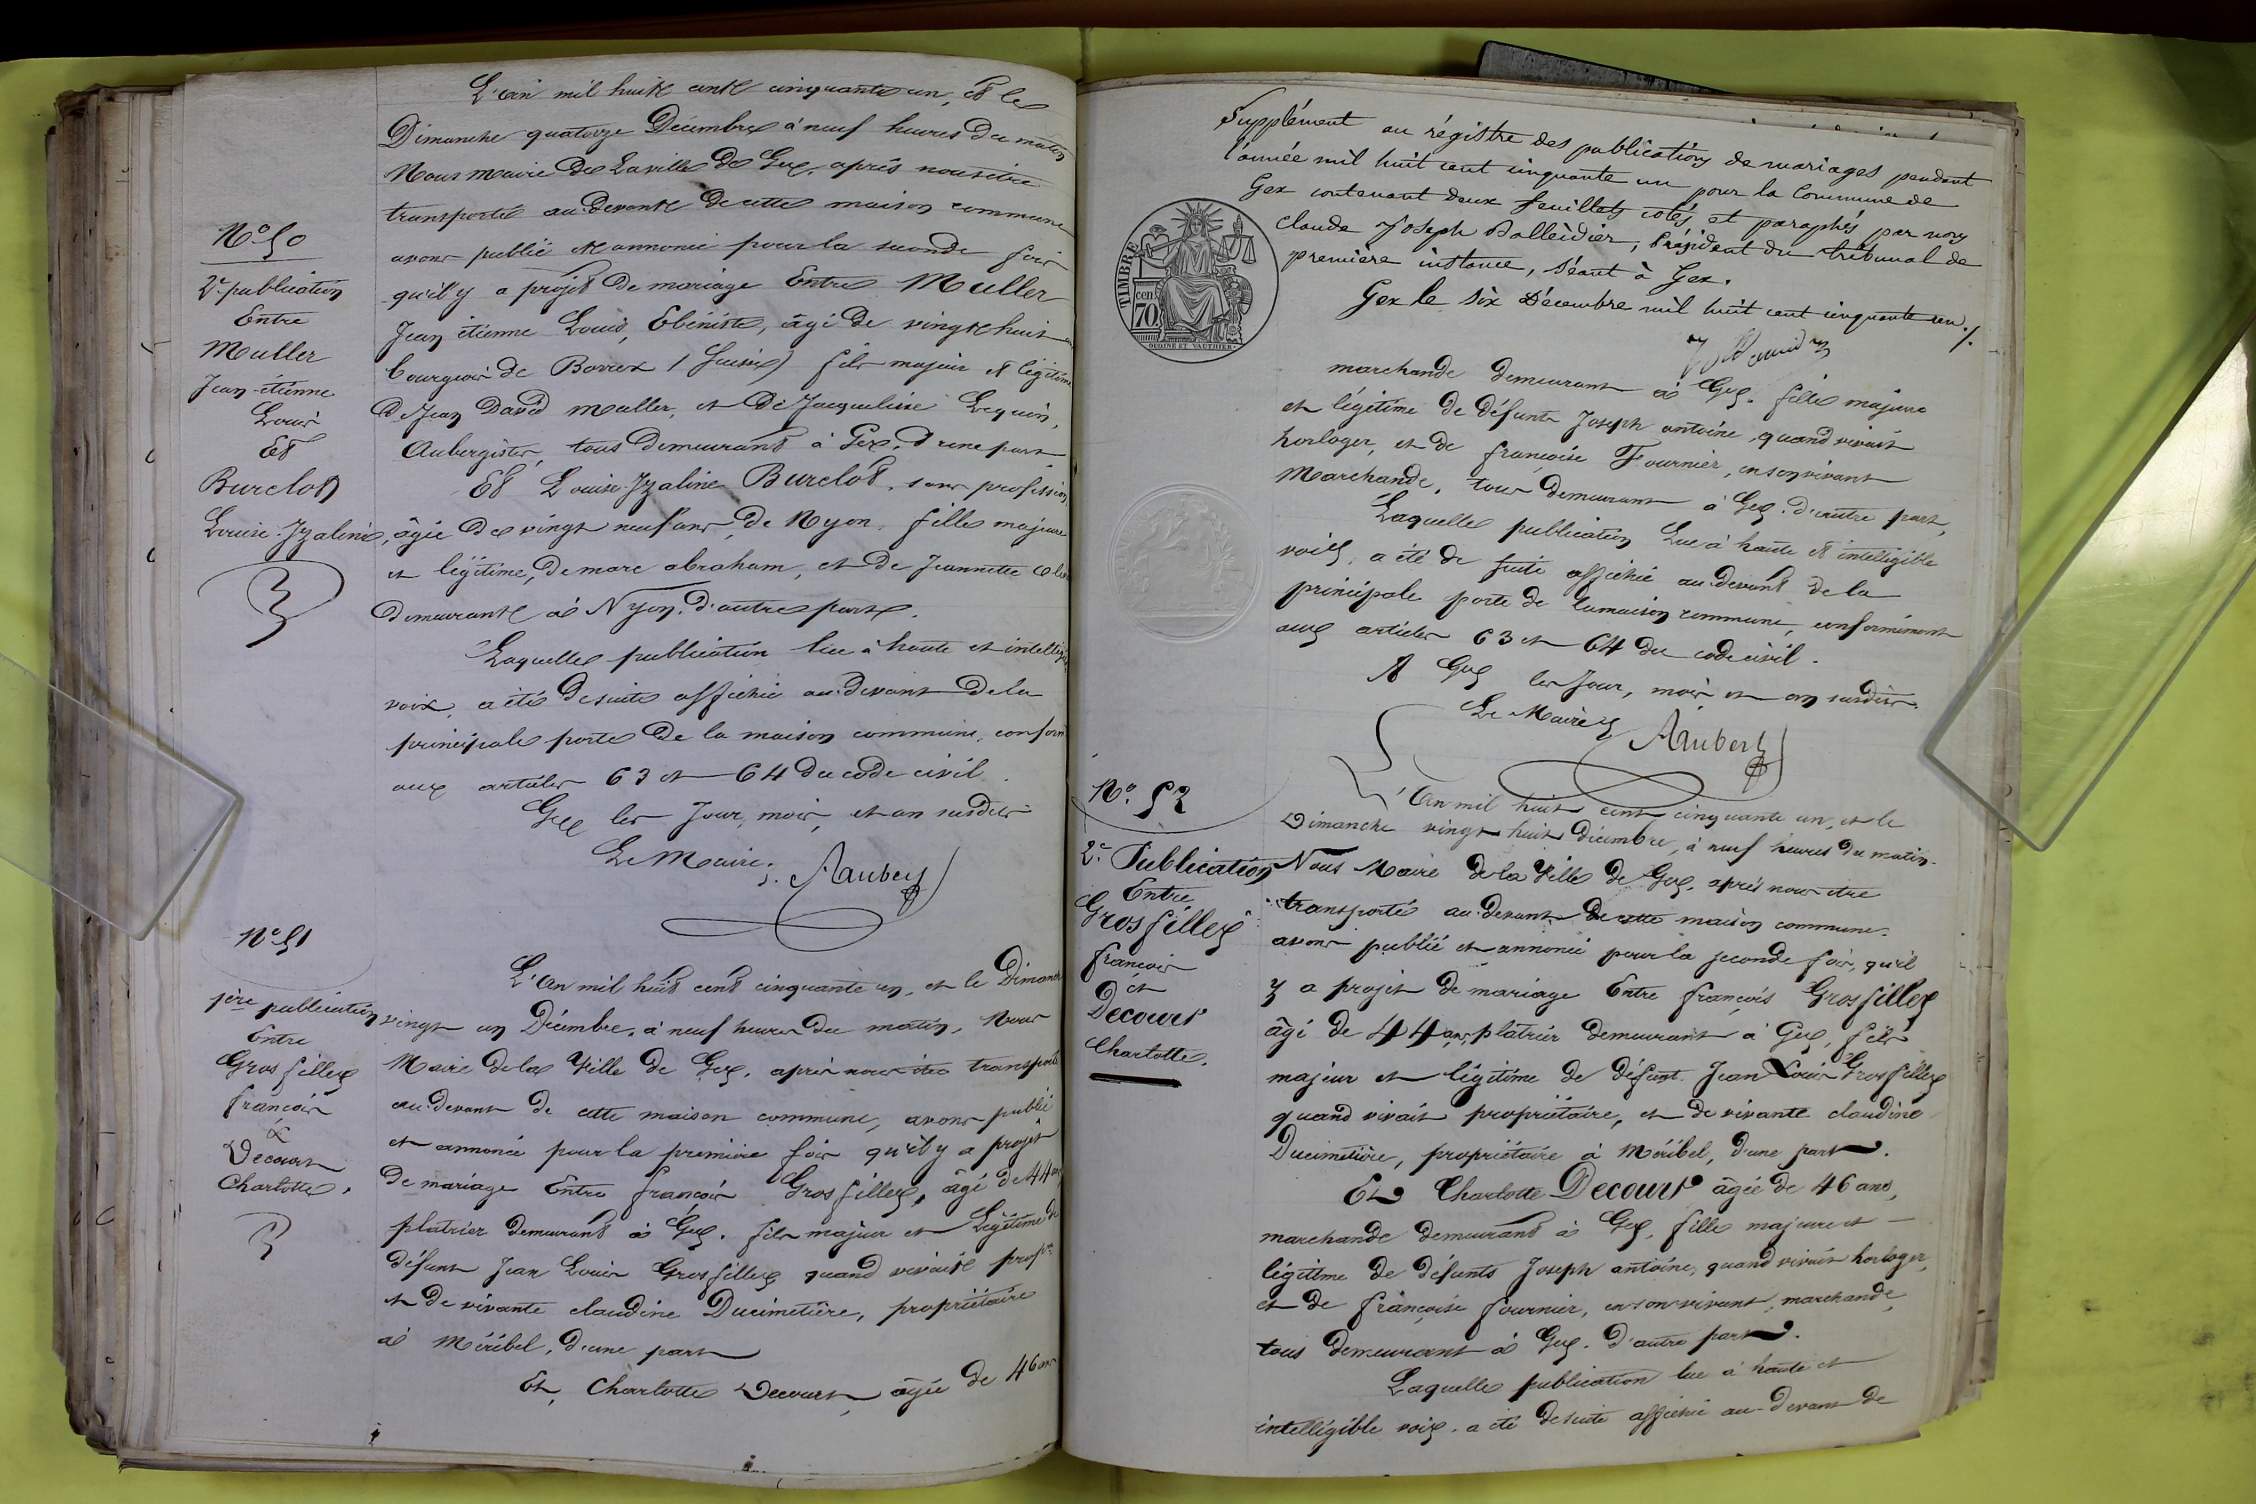 L'an mil huit cent cinquante un, et le
Dimanche quatorze Décembre à neuf heures du matin
Nous maire de la ville de Gex, après nous être
transporté au devant de cette maison commune
avons publié et annoncé pour la seconde fois
qu'il y a projet de mariage Entre Muller
Jean étienne Louis, Ebéniste, âgé de vingt huit
bourgeois de (Suisse) fils majeur et légitime
de Jean David muller, et de Jacqueline Lequin,
Aubergistes, tous demeurants à Gex, d'une part
Et Louise Izaline Burclot, sans profession,
âgée de vingt neuf ans, de Nyon, fille majeure
et légitime, de marc abraham, et de Jeannette
demeurant à Nyon, d'autre part.
Laquelle publication lue à haute et intelligi
voix, a été de suite affichée au devant de la
principale porte de la maison commune, conform
aux articles 63 et 64 du code civil.
Gex les Jour, mois, et an susdits
Le Maire;
Aubery
N° 50
2e publication
Entre
Muller
Jean-étienne
Louis
Et
Burclot
Louise Izaline,
N° 51
1ère publication
Entre
Grosfillex
françois
&
Decourt
Charlotte,
L'an mil huit cent cinquante un, et le Dimanche
vingt un Décembre, à neuf heures du matin, Nous
Maire de la Ville de Gex, après nous être transporté
au devant de cette maison commune, avons publié
et annoncé pour la première fois qu'il y a projet
de mariage Entre françois Grosfillex, âgé de 44 ans
platrier demeurant à Gex, fils majeur et Légitime de
défunt Jean Louis Grosfillex quand vivait propre
et de vivante claudine Ducimetière, propriétaire
à Méribel, d'une part
Et, Charlotte Decourt, âgée de 46 ans
Supplément au régistre des publications de mariages pendant
l'année mil huit cent cinquante un pour la Commune de
Gex contenant deux feuillets cotés et paraphés par nous
Claude Joseph Balleidier, Président du tribunal de
première instance, séant à Gex.
Gex le six Décembre mil huit cent cinquante un./.
TIMBRE
cen
70.
marchande demeurant à Gex. fille majeure
et légitime de défunts Joseph antoine, quand vivait
horloger, et de françoise Fournier, en son vivant
Marchande, tous demeurant à Gex. d'autre part,
Laquelle publication Lue à haute et intelligible
voix, a été de suite affichée au devant de la
principale porte de la maison commune, conformément
aux articles 63 et 64 du code civil.
A Gex les Jour, mois et an susdits.
Le Maire
Aubery
N° 52
2e Publication
Entre
Grosfillex
françois
et
Decourt
Charlotte,
L'An mil huit cent cinquante un, et le
Dimanche vingt huit Décembre, à neuf heures du matin.
Nous Maire de la Ville de Gex, après nous être
transporté au devant de cette maison commune.
avons publié et annoncé pour la seconde fois, qu'il
y a projet de mariage Entre françois Grosfillex
âgé de 44 ans, platrier demeurant à Gex, fils
majeur et légitime de défunt Jean Louis Grosfillex
quand vivait propriétaire, et de vivante claudine
Ducimetière, propriétaire à Méribel, d'une part.
Et Charlotte Decourt âgée de 46 ans,
marchande demeurant à Gex, fille majeure et
légitime de défunts Joseph antoine, quand vivait horloger,
et de françoise fournier, en son vivant, marchande,
tous demeurant à Gex. d'autre part.
Laquelle publication lue à haute et
intelligible voix, a été de suite affichée au-devant de